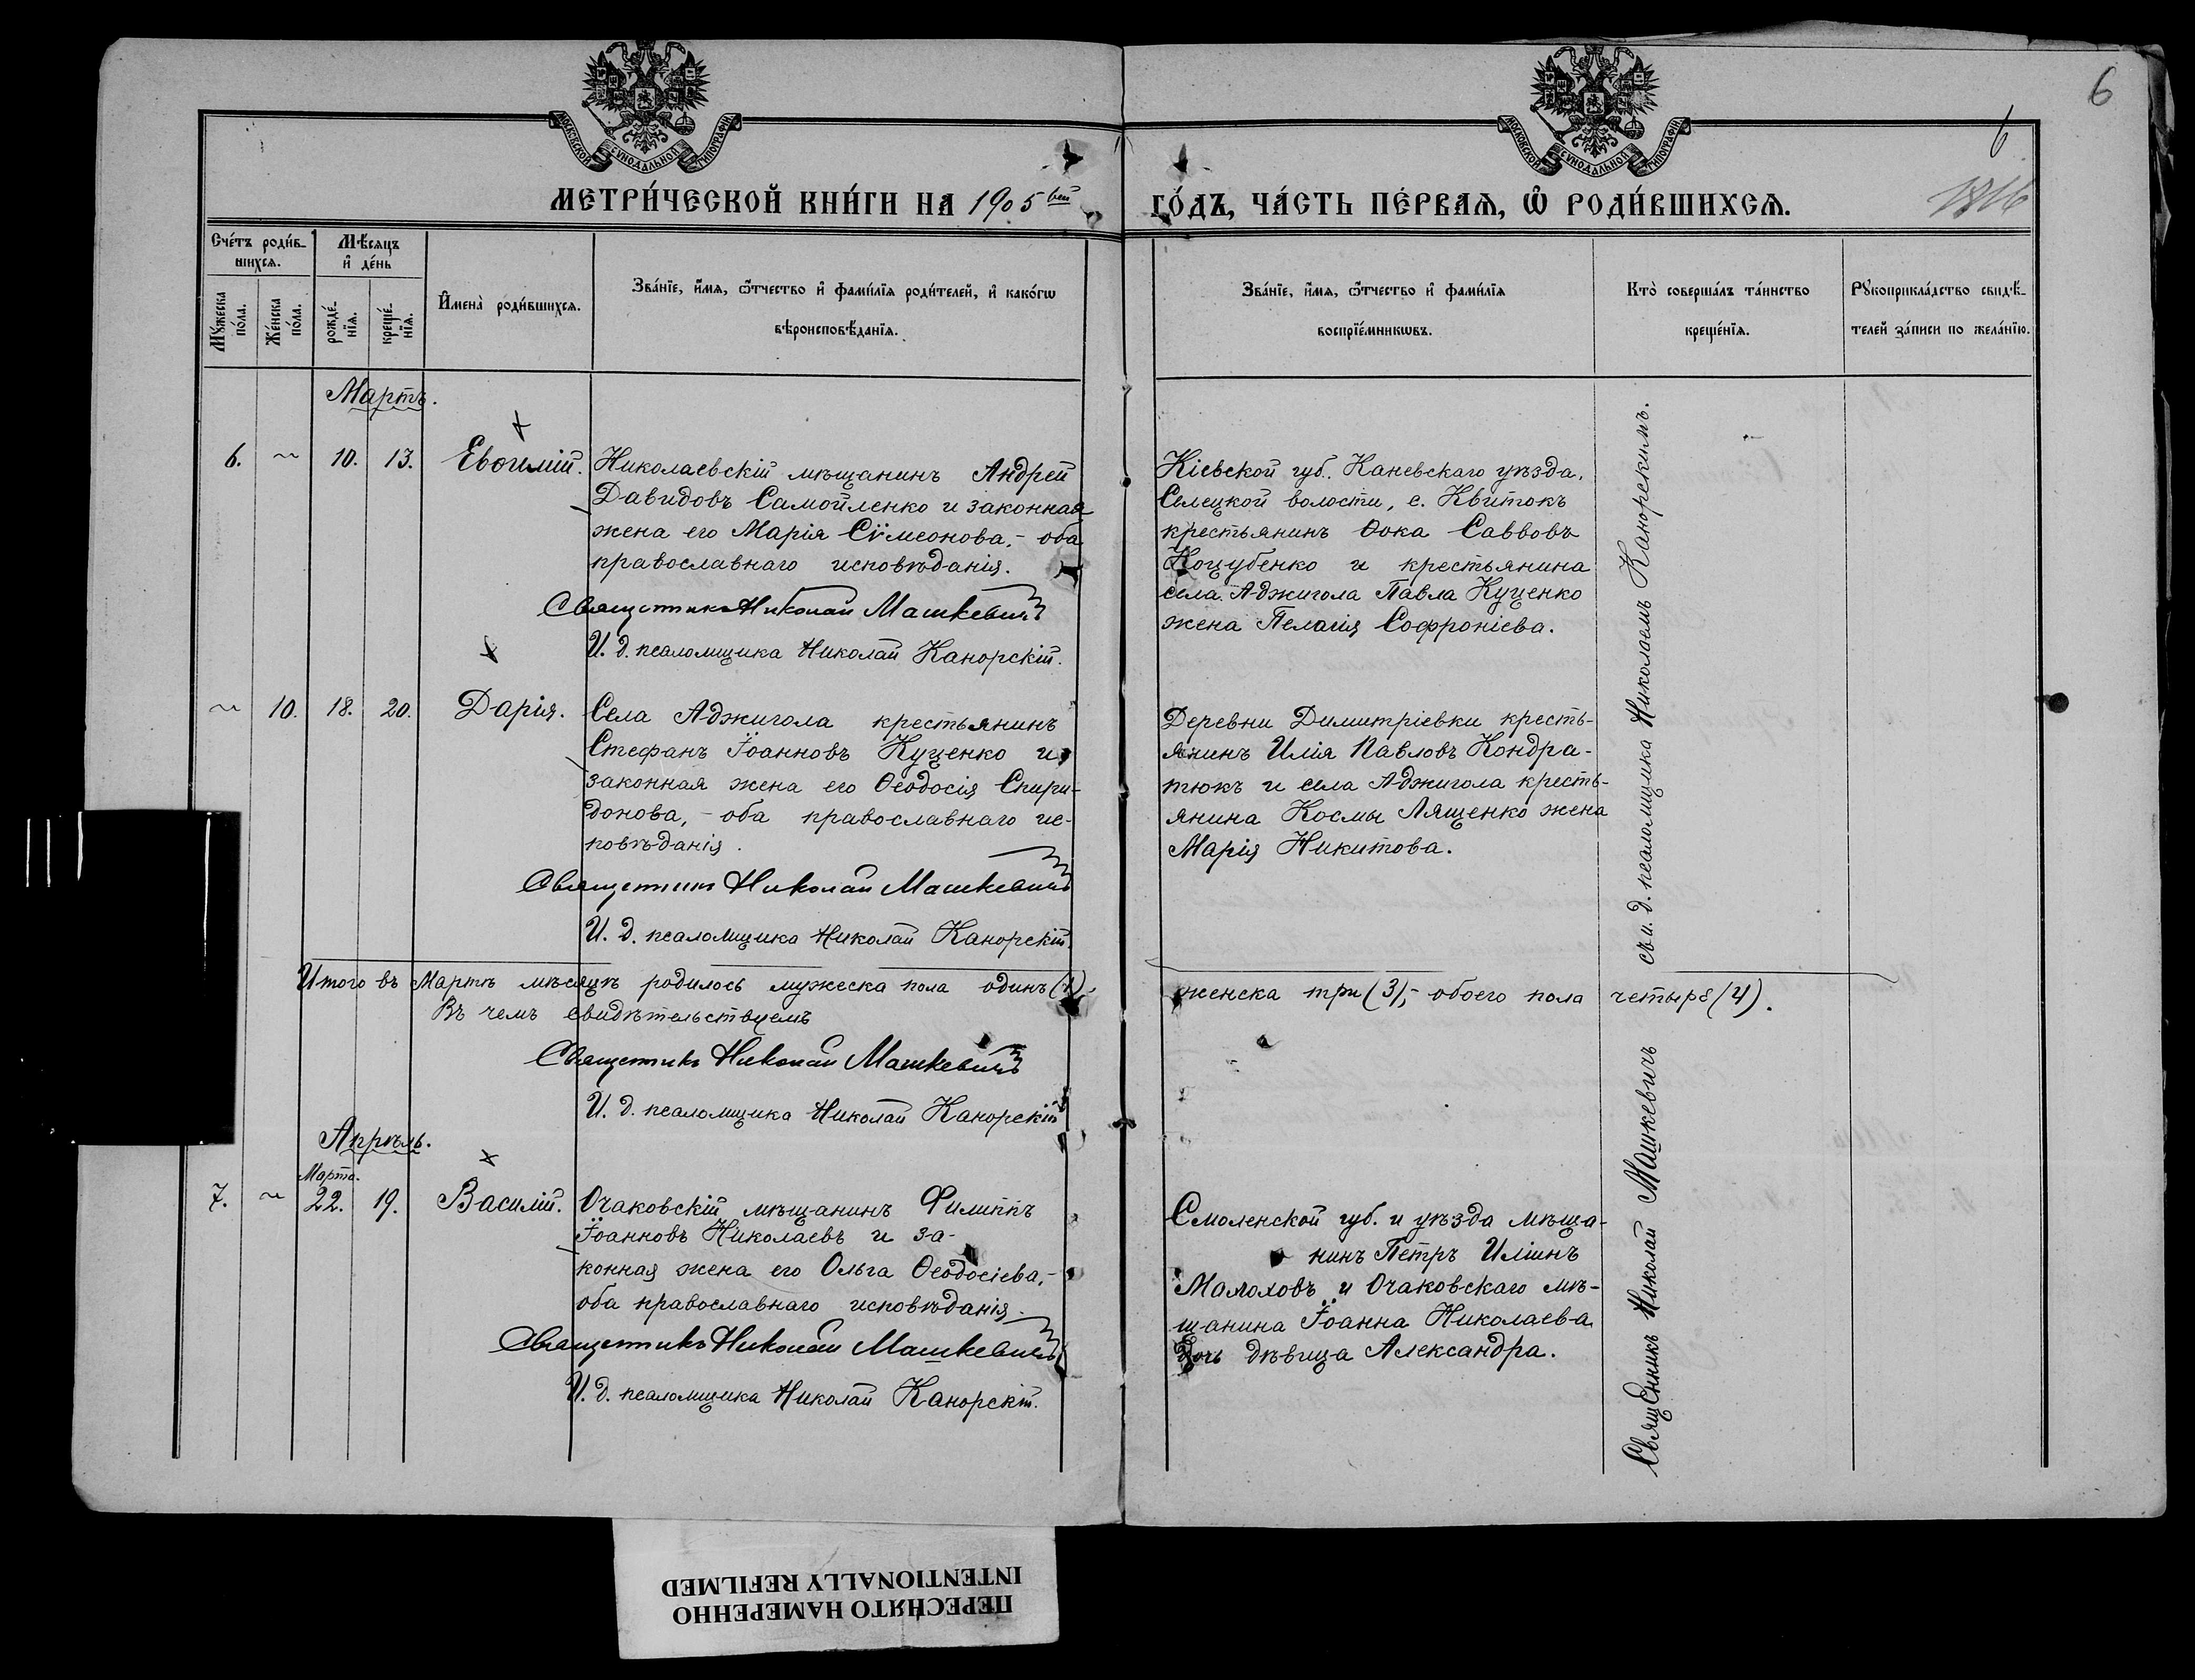 6
6
1816
МОСКОВСКОЙ СѴНОДАЛЬНОЙ ТИПОГРАФІИ
МОСКОВСКОЙ СѴНОДАЛЬНОЙ ТИПОГРАФІИ
МЕТРИ́ЧЕСКОЙ КНИ́ГИ НА 1905 вый
ГО́ДЪ, ЧА́СТЬ ПЕ́РВАѦ, Ѡ҆ РОДИ́ВШИХСѦ.
Сче́тъ роди́в-
шихсѧ.
Мѣ́сяцъ
и҆ де́нь
Мꙋ́жеска
по́ла.
Же́нска
по́ла.
рожде́-
нїѧ.
креще́-
нїѧ.
И҆мена̀ роди́вшихсѧ.
Зва́нїе, и҆́мѧ, ѻ҆́тчество и҆ фами́лїѧ роди́телей, и҆ како́гѡ
вѣроисповѣ́данїѧ.
Зва́нїе, и҆́мѧ, ѻ҆́тчество и҆ фами́лїѧ
воспрїе́мникѡвъ.
Кто̀ соверша́лъ та́инство
креще́нїѧ.
Рꙋкоприкла́дство свидѣ́-
телей за́писи по жела́нїю.
Мартъ.
6. ~ 10. 13. Евѳимій.
Николаевскій мѣщанинъ Андрей
Давидовъ Самойленко и законная
жена его Марія Сѷмеонова,- оба
православнаго исповѣданія.
Священникъ Николай Машкевичъ
И. д. псаломщика Николай Канорскій.
Кіевской губ. Каневскаго уѣзда,
Селецкой волости, с. Квитокъ
крестьянинъ Ѳока Саввовъ
Коцубенко и крестьянина
села Аджигола Павла Куценко
жена Пелагія Софроніева.
~ 10. 18. 20. Дарія.
Села Аджигола крестьянинъ
Стефанъ Іоанновъ Куценко и
законная жена его Ѳеодосія Спири-
донова,- оба православнаго ис-
повѣданія.
Священникъ Николай Машкевичъ
И. д. псаломщика Николай Канорскій.
Деревни Димитріевки кресть-
янинъ Илія Павловъ Кондра-
тюкъ и села Аджигола кресть-
янина Космы Лященко жена
Марія Никитова.
Итого въ Мартѣ мѣсяцѣ родилось мужеска пола одинъ (1),
женска три (3),- обоего пола четыре (4).
Въ чемъ свидѣтельствуемъ
Священникъ Николай Машкевичъ
И. д. псаломщика Николай Канорскій
Апрѣль.
Марта.
7. ~ 22. 19. Василій.
Очаковскій мѣщанинъ Филиппъ
Іоанновъ Николаевъ и за-
конная жена его Ольга Ѳеодосіева,-
оба православнаго исповѣданія.
Священникъ Николай Машкевичъ
И. д. псаломщика Николай Канорскій.
Смоленской губ. и уѣзда мѣща-
нинъ Петръ Иліинъ
Малоховъ и Очаковскаго мѣ-
щанина Іоанна Николаева
дочь дѣвица Александра.
Священникъ Николай Машкевичъ съ и. д. псаломщика Николаемъ Канорскимъ.
ПЕРЕСНЯТО НАМЕРЕННО
INTENTIONALLY REFILMED